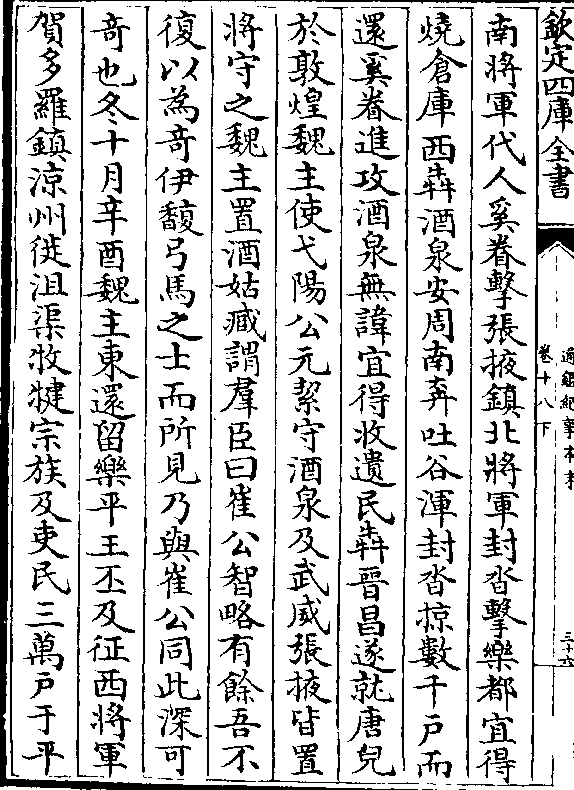 欽定四庫全書
通鑑紀事本末
卷十八下
三十六
南將軍代人奚眷擊張掖鎮北將軍封沓擊樂都宜得
燒倉庫西犇酒泉安周南奔吐谷渾封沓掠數千戶而
還奚眷進攻酒泉無諱宜得收遺民犇晉昌遂就唐兒
於敦煌魏主使弋陽公元絜守酒泉及武威張掖皆置
將守之魏主置酒姑臧謂羣臣曰崔公智略有餘吾不
復以為竒伊馛弓馬之士而所見乃與崔公同此深可
竒也冬十月辛酉魏主東還留樂平王丕及征西將軍
賀多羅鎮涼州徙沮渠牧犍宗族及吏民三萬戶于平